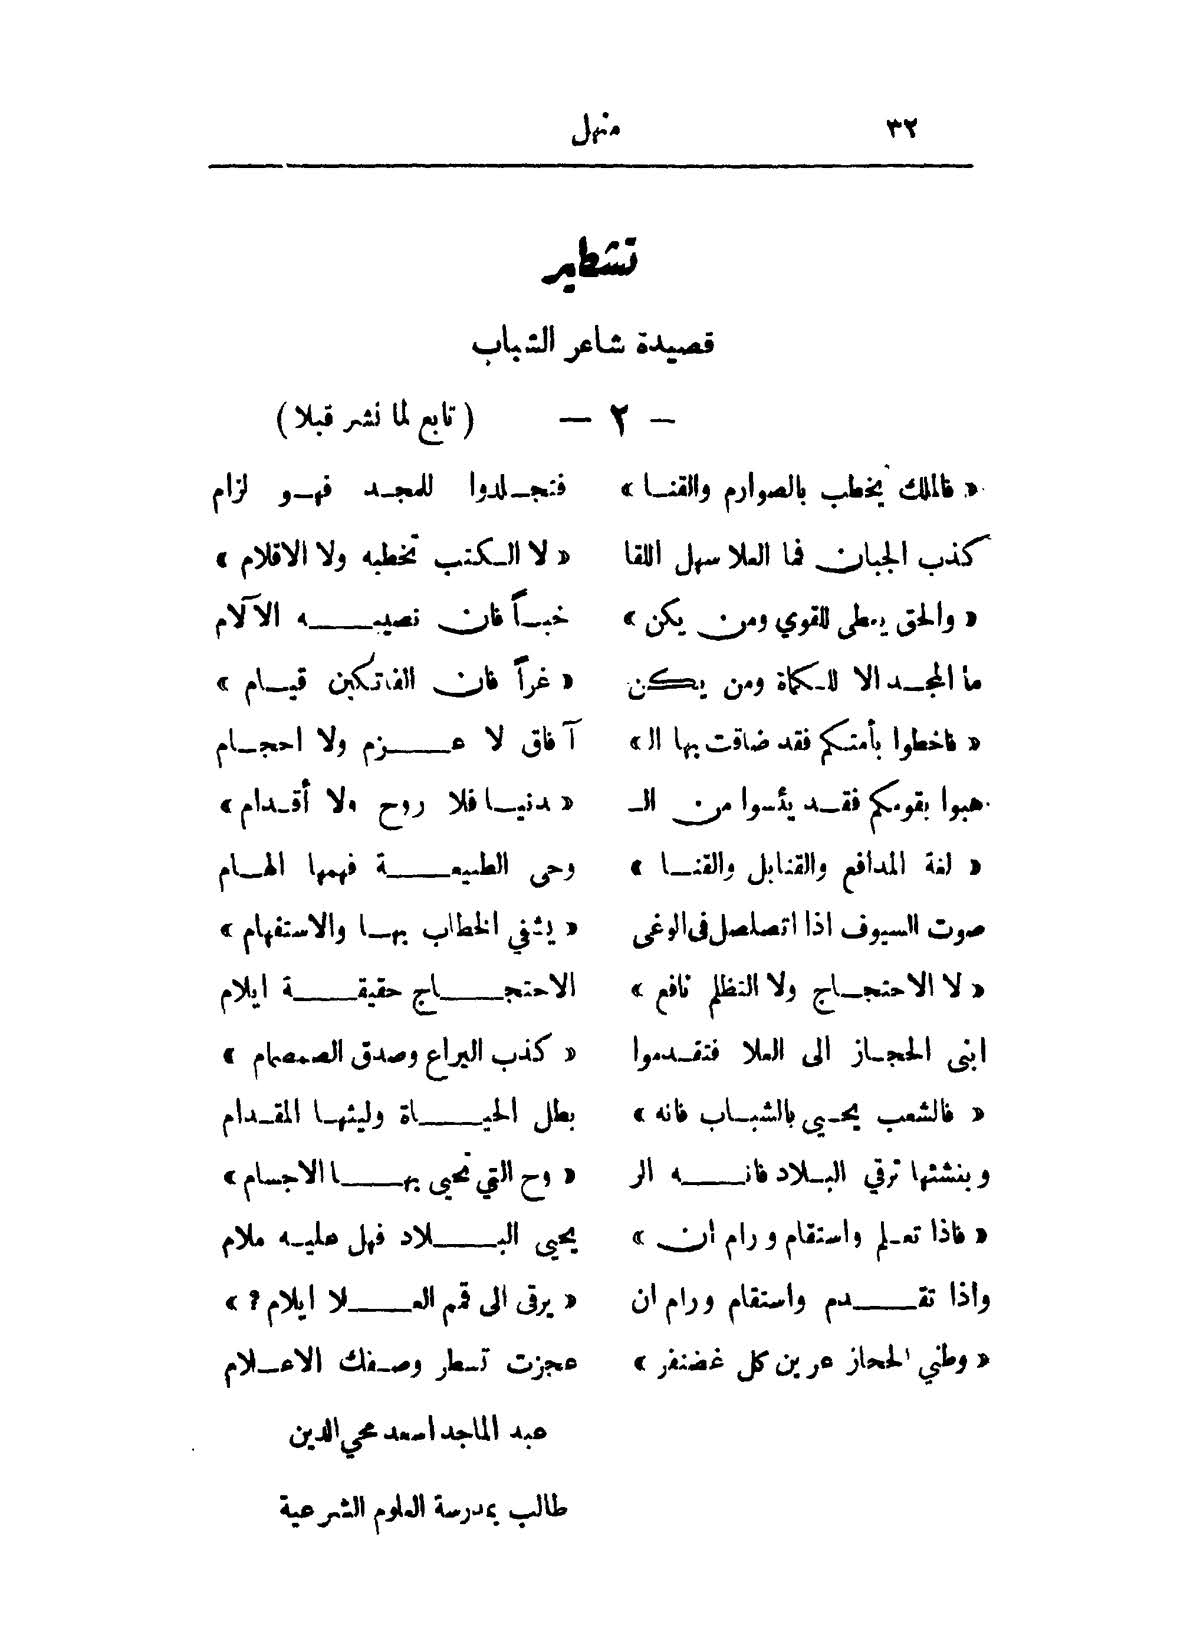 ٣٢ منهل
تشطير
قصيدة شاعر الشباب
— ٢ — ( تابع لما نشر قبلا )
« فالملك يخطب بالصوارم والقنـا » فتجـلدوا للمجـد فهـو لزام
كذب الجبان فما العلا سهل اللقا « لا الـكتب تخطبه ولا الاقلام »
« والحق يعطى للقوي ومن يكن » خبـاً فان نصيبـــه الآلام
ما المجـد الا للـكماة ومن يـكن « غراً فان الفاتكين قيـام »
« فاخطوا بأمتـكم فقد ضاقت بها الـ » آفاق لا عـــزم ولا احجـام
هبوا بقومكم فقـد يئسوا من الـ « دنيـا فلا روح ولا أقـدام »
« لغة المدافع والقنابل والقنـا » وحى الطبيعـــة فهمها الهـام
صوت السيوف اذا اتصلصل فى الوغى « يثفي الخطاب بهـا والاستفهام »
« لا الاحتجـاج ولا التظلم نافع » الاحتجـــاج حقيقـــة ايلام
ابنى الحجـاز الى العلا فتقـدموا « كذب اليراع وصدق الصمصام »
« فالشعب يحـيي بالشبـاب فانه » بطل الحيـــاة وليثهـا المقـدام
وبنشئها ترقي البـلاد فانـــه الر « وح التي تحيى بهـــا الاجسام »
« فاذا تعـلم واستقام ورام ان » يحيى البـــلاد فهل عليـه ملام
واذا تقـــدم واستقام ورام ان « يرقى الى قمم العـــلا ايلام ؟ »
« وطني الحجاز عرين كل غضنفر » عجزت تسطر وصـفك الاعـلام
عبد الماجد اسعد محي الدين
طالب بمدرسة العلوم الشرعية